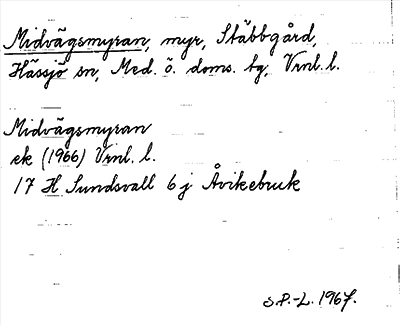 Midvägsmyran, myr, Stäbbgård,
Hässjö sn, Med. ö. doms. tg, Vrnl. l.
Midvägsmyran
ek (1966) Vrnl. l.
17 H Sundsvall 6 j Åvikebruk
S.P.-L. 1967.